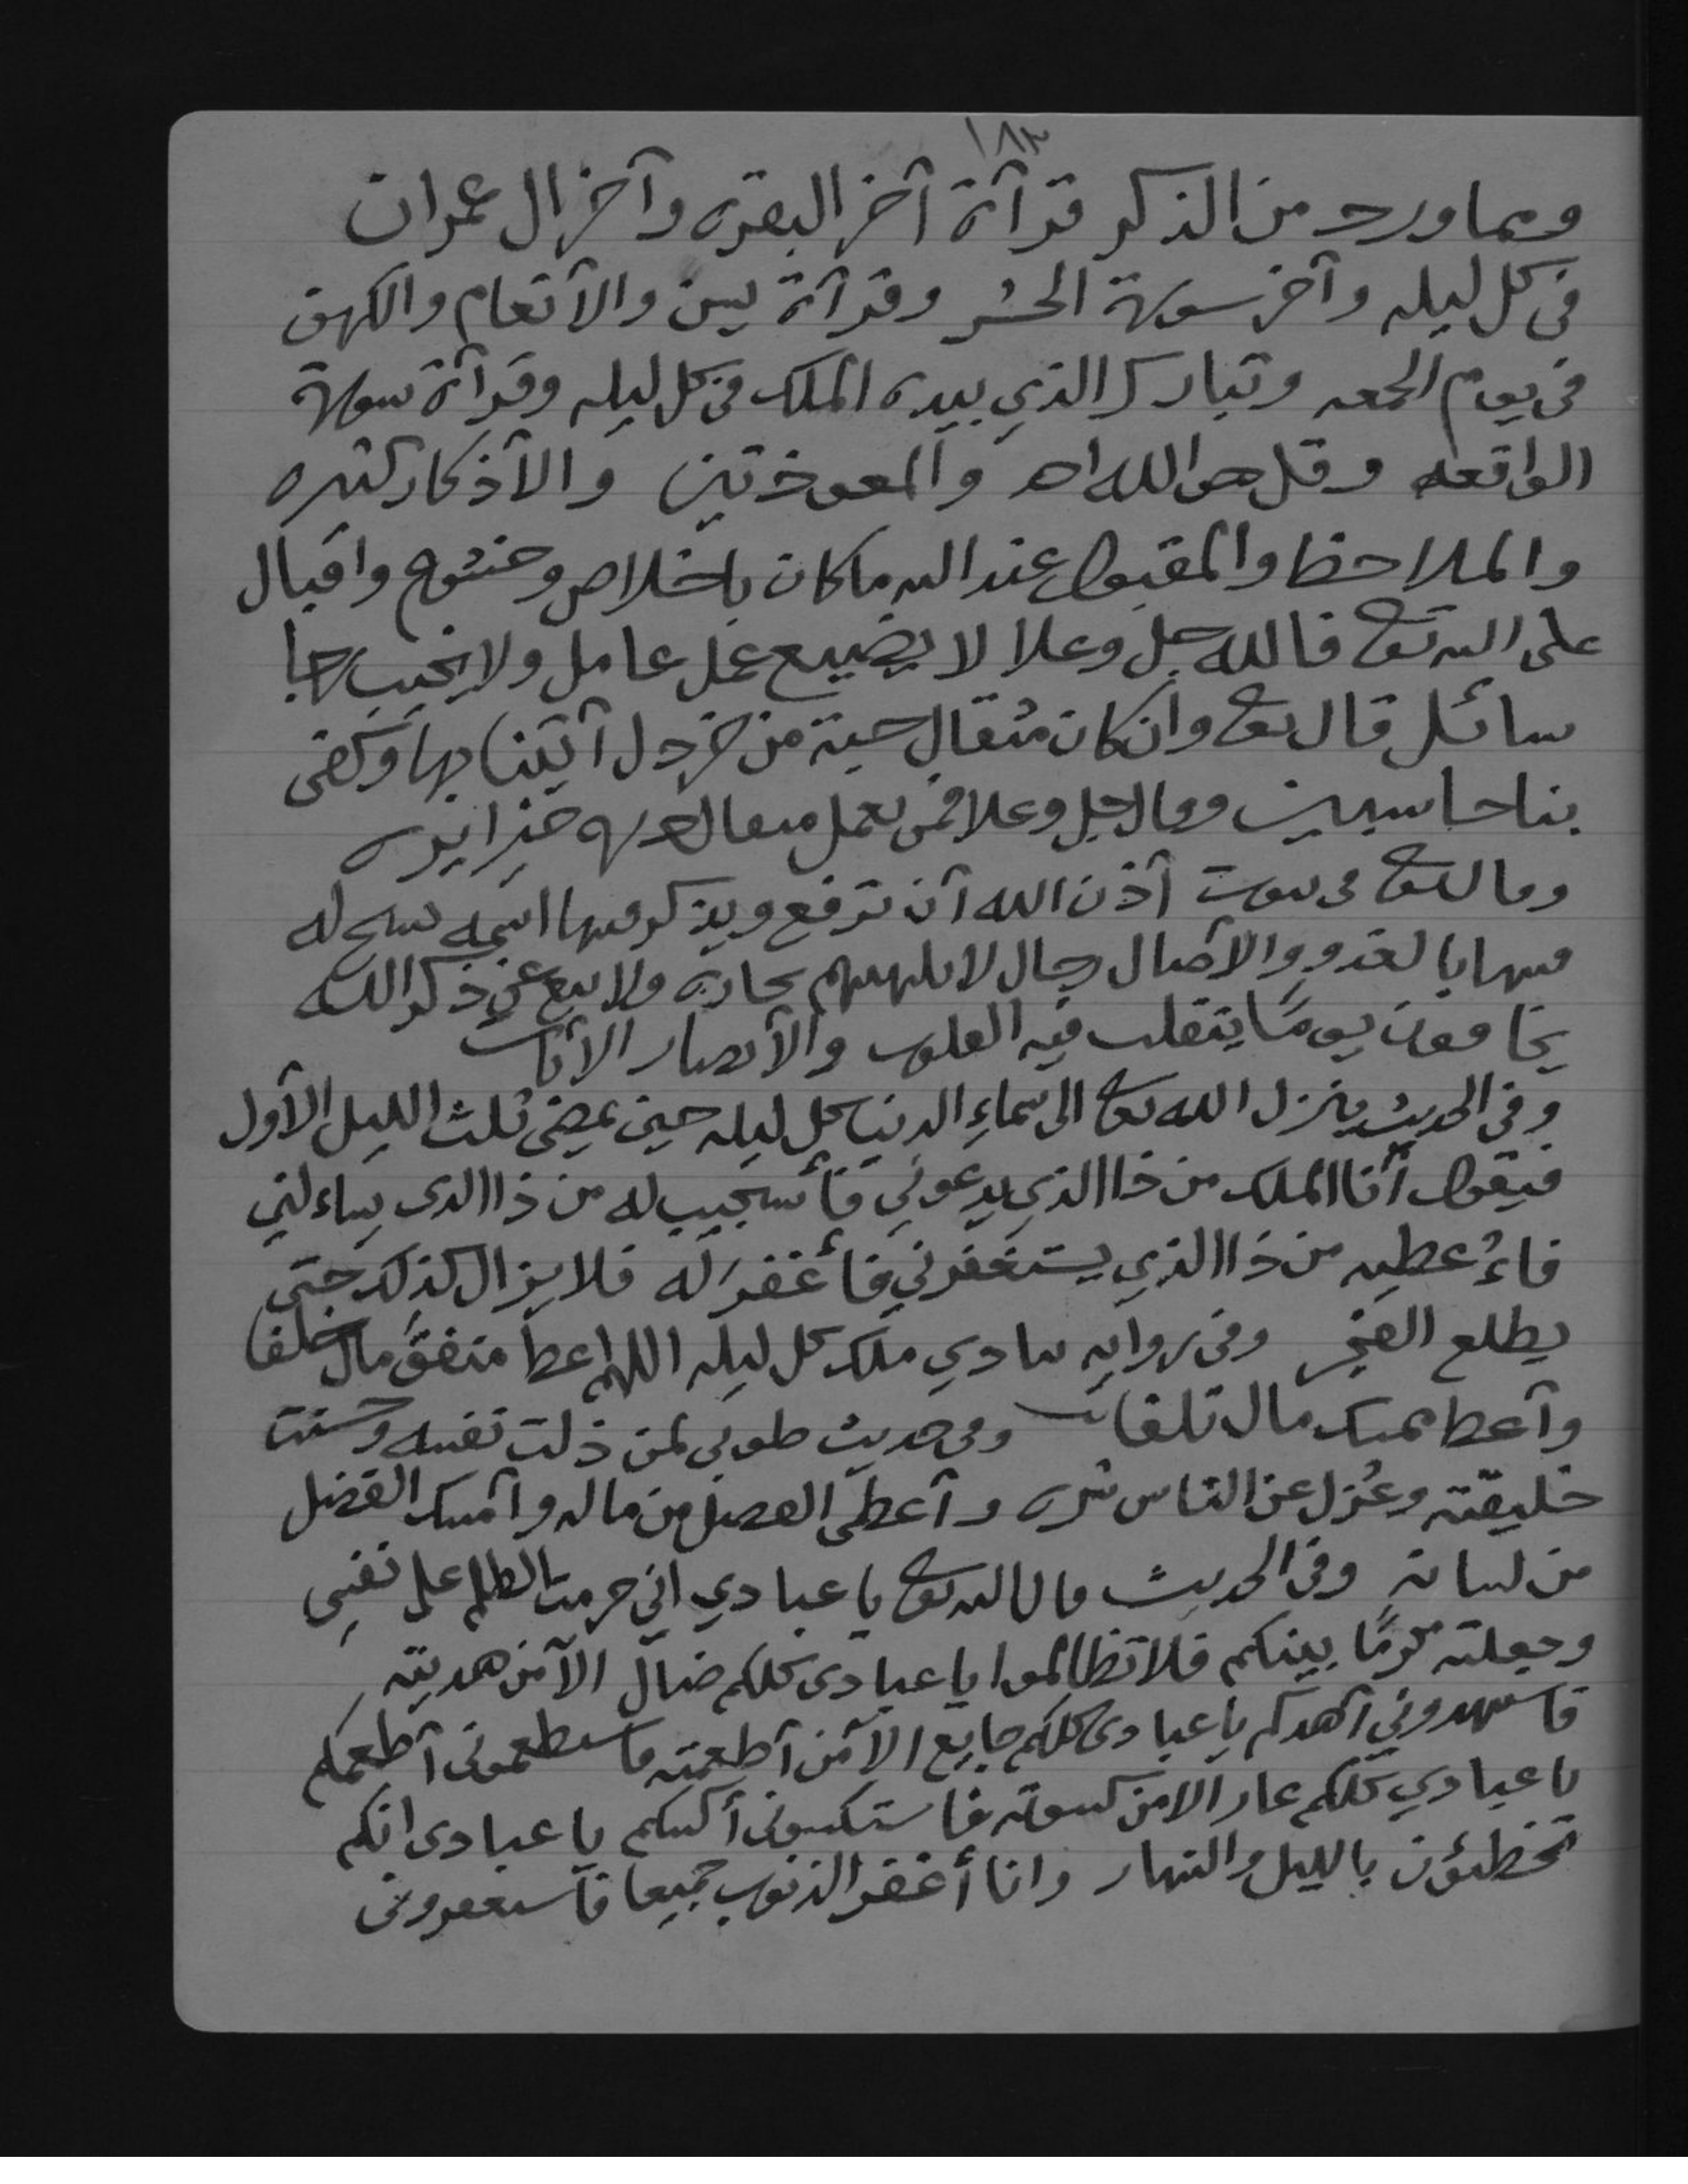 ١٨٣
ومما ورد من الذكر قرآة آخر البقره وآخر ال عمران
في كل ليله وآخر سورة الحشر وقرآة يس والآنعام والكهف
في يوم الجمعه وتبارك الذي بيده الملك في كل ليله وقرآة سورة
الواقعه وقل هو الله احد والمعوذتين والآذكار كثيره
والملاحظ والمقبول عند الله ماكان باخلاص وخشوع واقبال
على الله تعا فالله جل وعلا لا يضيع عمل عامل ولا يخيب رجا
سائل قال تعا وان كان مثقال حبة من خردل آتينا بها وكفى
بنا حاسبين وقال جل وعلا فمن يعمل مثقال ذره خيرا يره
وقال تعا في بيوت آذن الله آن ترفع ويذكر فيها اسمه يسبح له
فيها بالغدو والآصال رجال لا تلهيهم تجاره ولا بيع عن ذكر الله
يخافون يومًا يتقلب فيه القلوب والآبصار الآيات
وفي الحديث ينزل الله تعا الى سماءِ الدنيا كل ليله حين يمضي ثلث الليل الآول
فيقول أنا الملك من ذا الذي يدعوني فأستجيب له من ذا الذى يساء لني
فاءُعطيه من ذا الذي يستغفرني فأغفرَ له فلا يزال كذلك حتى
يطلع الفجر وفي روايه ينادي ملك كل ليله اللهم اعط منفق مال خلفا
وآعط ممسك مال تلفا وفي حديث طوبى لمن ذلت نفسه وحسنت
خليقته وعُزل عن الناس شره وآعطى الفضل من ماله وآمسك الفضل
من لسانه وفي الحديث قال الله تعا يا عبادي اني حرمت الظلم على نفسِي
وجعلته محرمًا بينكم فلا تظالموا يا عبادى كلكم ضال الآ من هديته
فاستهدوني آهدكم يا عبادى كلكم جايع الآ من آطعمته فاستطعموني آطعمكم
يا عبادي كلكم عار الآ من كسوته فاستكسوني أكسكم يا عبادى انكم
تخطئون بالليل والنهار وانا أغفر الذنوب جميعا فآستغفروني